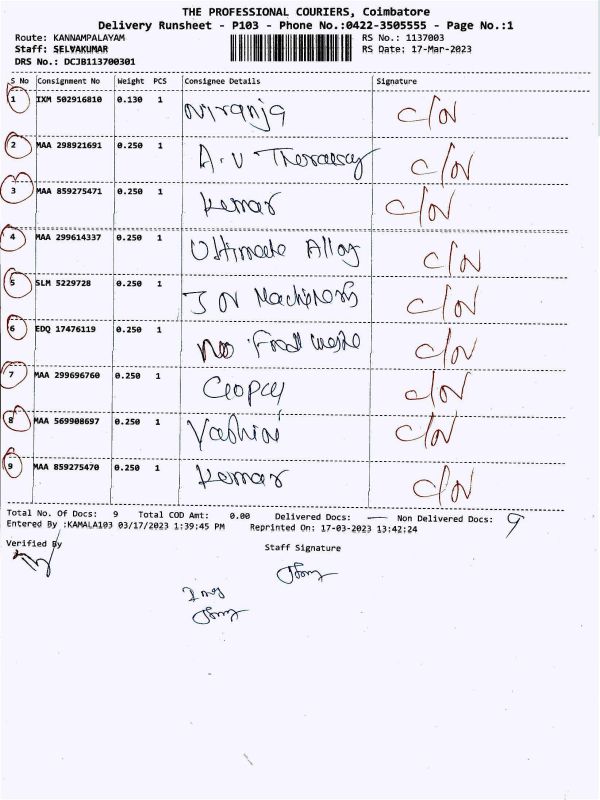 THE PROFESSIONAL COURIERS, Coimbatore
Delivery Runsheet - P103 - Phone No.:0422-3505555 - Page No.:1
Route: KANNAMPALAYAM RS No.: 1137003
Staff: SELVAKUMAR RS Date: 17-Mar-2023
DRS No.: DCJB113700301
S No Consignment No Weight PCS Consignee Details Signature
1 IXM 502916810 0.130 1 Niranja C/N
2 MAA 298921691 0.250 1 A.V. C/N
3 MAA 859275471 0.250 1 Kumar C/N
4 MAA 299614337 0.250 1 Ultimate Alloy C/N
5 SLM 5229728 0.250 1 J N C/N
6 EDQ 17476119 0.250 1 No Food waste C/N
7 MAA 299696760 0.250 1 C/N
8 MAA 569908697 0.250 1 C/N
9 MAA 859275470 0.250 1 Kumar C/N
Total No. Of Docs: 9 Total COD Amt: 0.00 Delivered Docs: — Non Delivered Docs: 9
Entered By :KAMALA103 03/17/2023 1:39:45 PM Reprinted On: 17-03-2023 13:42:24
Verified By
Staff Signature